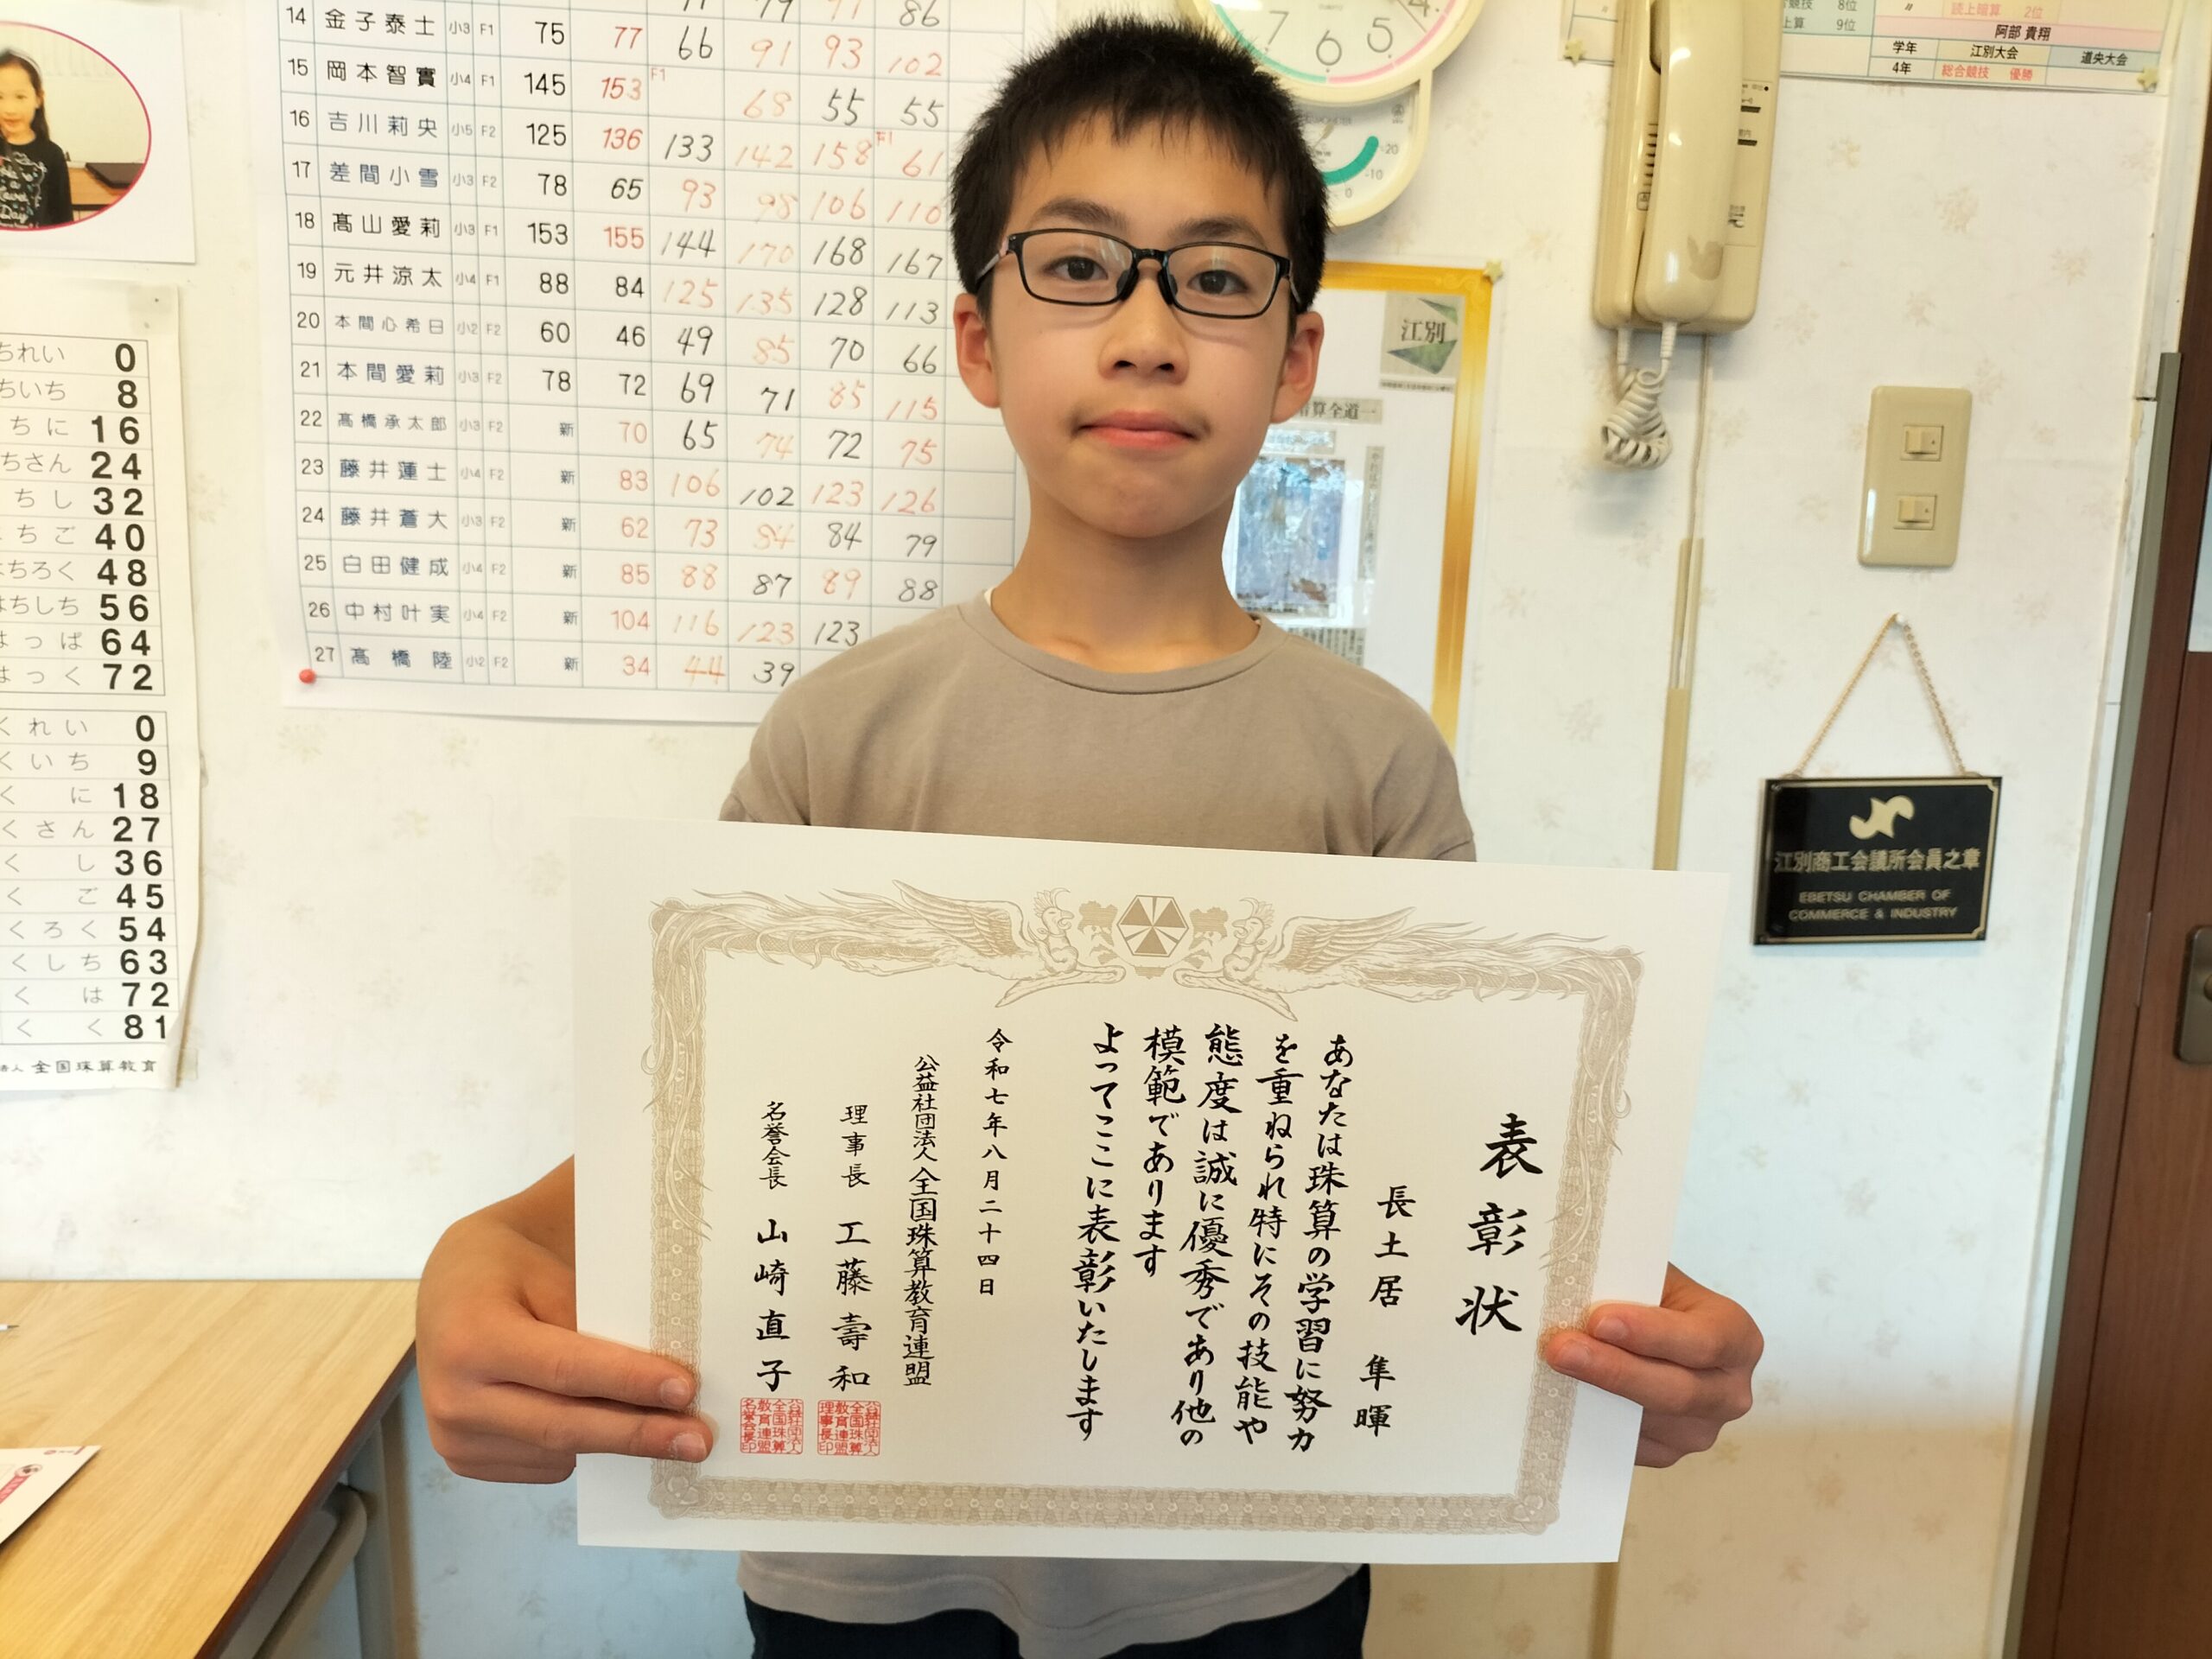 14 金子泰士 小3 F1 75 77 66 91 93 102
15 岡本智實 小4 F1 145 153 F1 68 55 55
16 吉川莉央 小5 F2 125 136 133 142 158 F1 61
17 差間小雪 小3 F2 78 65 93 98 106 110
18 髙山愛莉 小3 F1 153 155 144 170 168 167
19 元井涼太 小4 F1 88 84 125 135 128 113
20 本間心希日 小2 F2 60 46 49 85 70 66
21 本間愛莉 小3 F2 78 72 69 71 85 115
22 髙橋承太郎 小3 F2 新 70 65 74 72 75
23 藤井蓮士 小4 F2 新 83 106 102 123 126
24 藤井蒼大 小3 F2 新 62 73 84 84 79
25 白田健成 小4 F2 新 85 88 87 89 88
26 中村叶実 小4 F2 新 104 116 123 123
27 髙橋陸 小2 F2 新 34 44 39
ちれい 0
ちいち 8
ちに 16
ちさん 24
ちし 32
ちご 40
はちろく 48
はちしち 56
はっぱ 64
はっく 72
くれい 0
くいち 9
くに 18
くさん 27
くし 36
くご 45
くろく 54
くしち 63
くは 72
くく 81
法人 全国珠算教育
7 6 5 4
-20
-10
0
競技 8位
上算 9位
〃 読上暗算 2位
阿部 貴翔
学年 江別大会 道央大会
4年 総合競技 優勝
江別
暗算全道一
江別商工会議所会員之章
EBETSU CHAMBER OF
COMMERCE & INDUSTRY
表彰状
長土居 隼暉
あなたは珠算の学習に努力
を重ねられ特にその技能や
態度は誠に優秀であり他の
模範であります
よってここに表彰いたします
令和七年八月二十四日
公益社団法人全国珠算教育連盟
理事長 工藤壽和
名誉会長 山崎直子
公益社団法人全国珠算教育連盟理事長印
公益社団法人全国珠算教育連盟名誉会長印